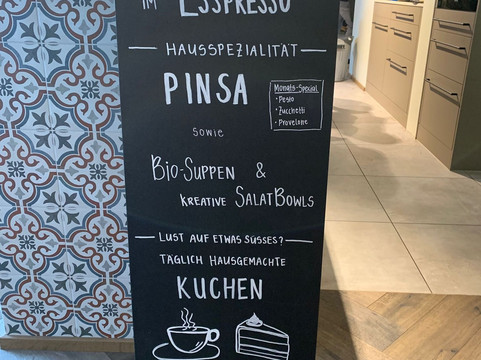 IM ESSPRESSO
HAUSSPEZIALITÄT
PINSA
Monats-Spezial
• Pesto
• Zucchetti
• Provelone
SOWIE
BIO-SUPPEN &
KREATIVE SALATBOWLS
LUST AUF ETWAS SÜSSES?
TÄGLICH HAUSGEMACHTE
KUCHEN